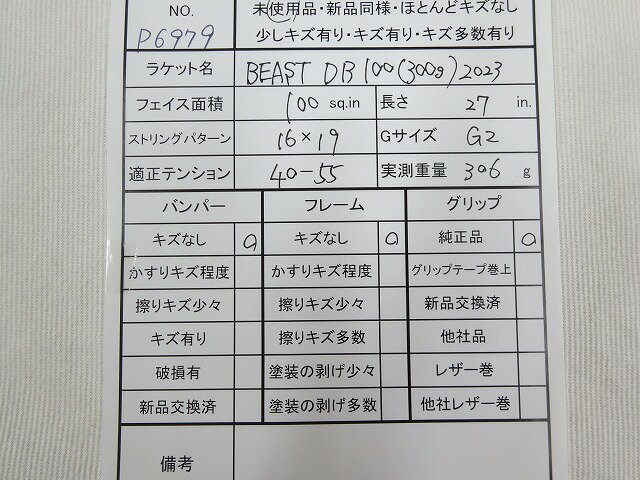 NO. 未使用品・新品同様・ほとんどキズなし
P6979 少しキズ有り・キズ有り・キズ多数有り
ラケット名 BEAST DB 100 (300g) 2023
フェイス面積 100 sq.in 長さ 27 in.
ストリングパターン 16×19 Gサイズ G2
適正テンション 40-55 実測重量 306 g
バンパー フレーム グリップ
キズなし キズなし 純正品
かすりキズ程度 かすりキズ程度 グリップテープ巻上
擦りキズ少々 擦りキズ少々 新品交換済
キズ有り 擦りキズ多数 他社品
破損有 塗装の剥げ少々 レザー巻
新品交換済 塗装の剥げ多数 他社レザー巻
備考